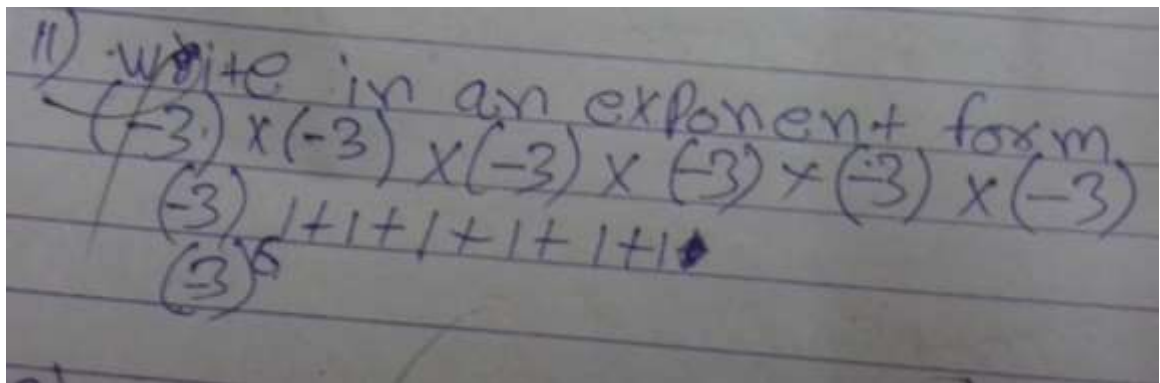 11) write in an exponent form
(-3) × (-3) × (-3) × (-3) × (-3) × (-3)
(-3) 1+1+1+1+1+1
(-3)⁶